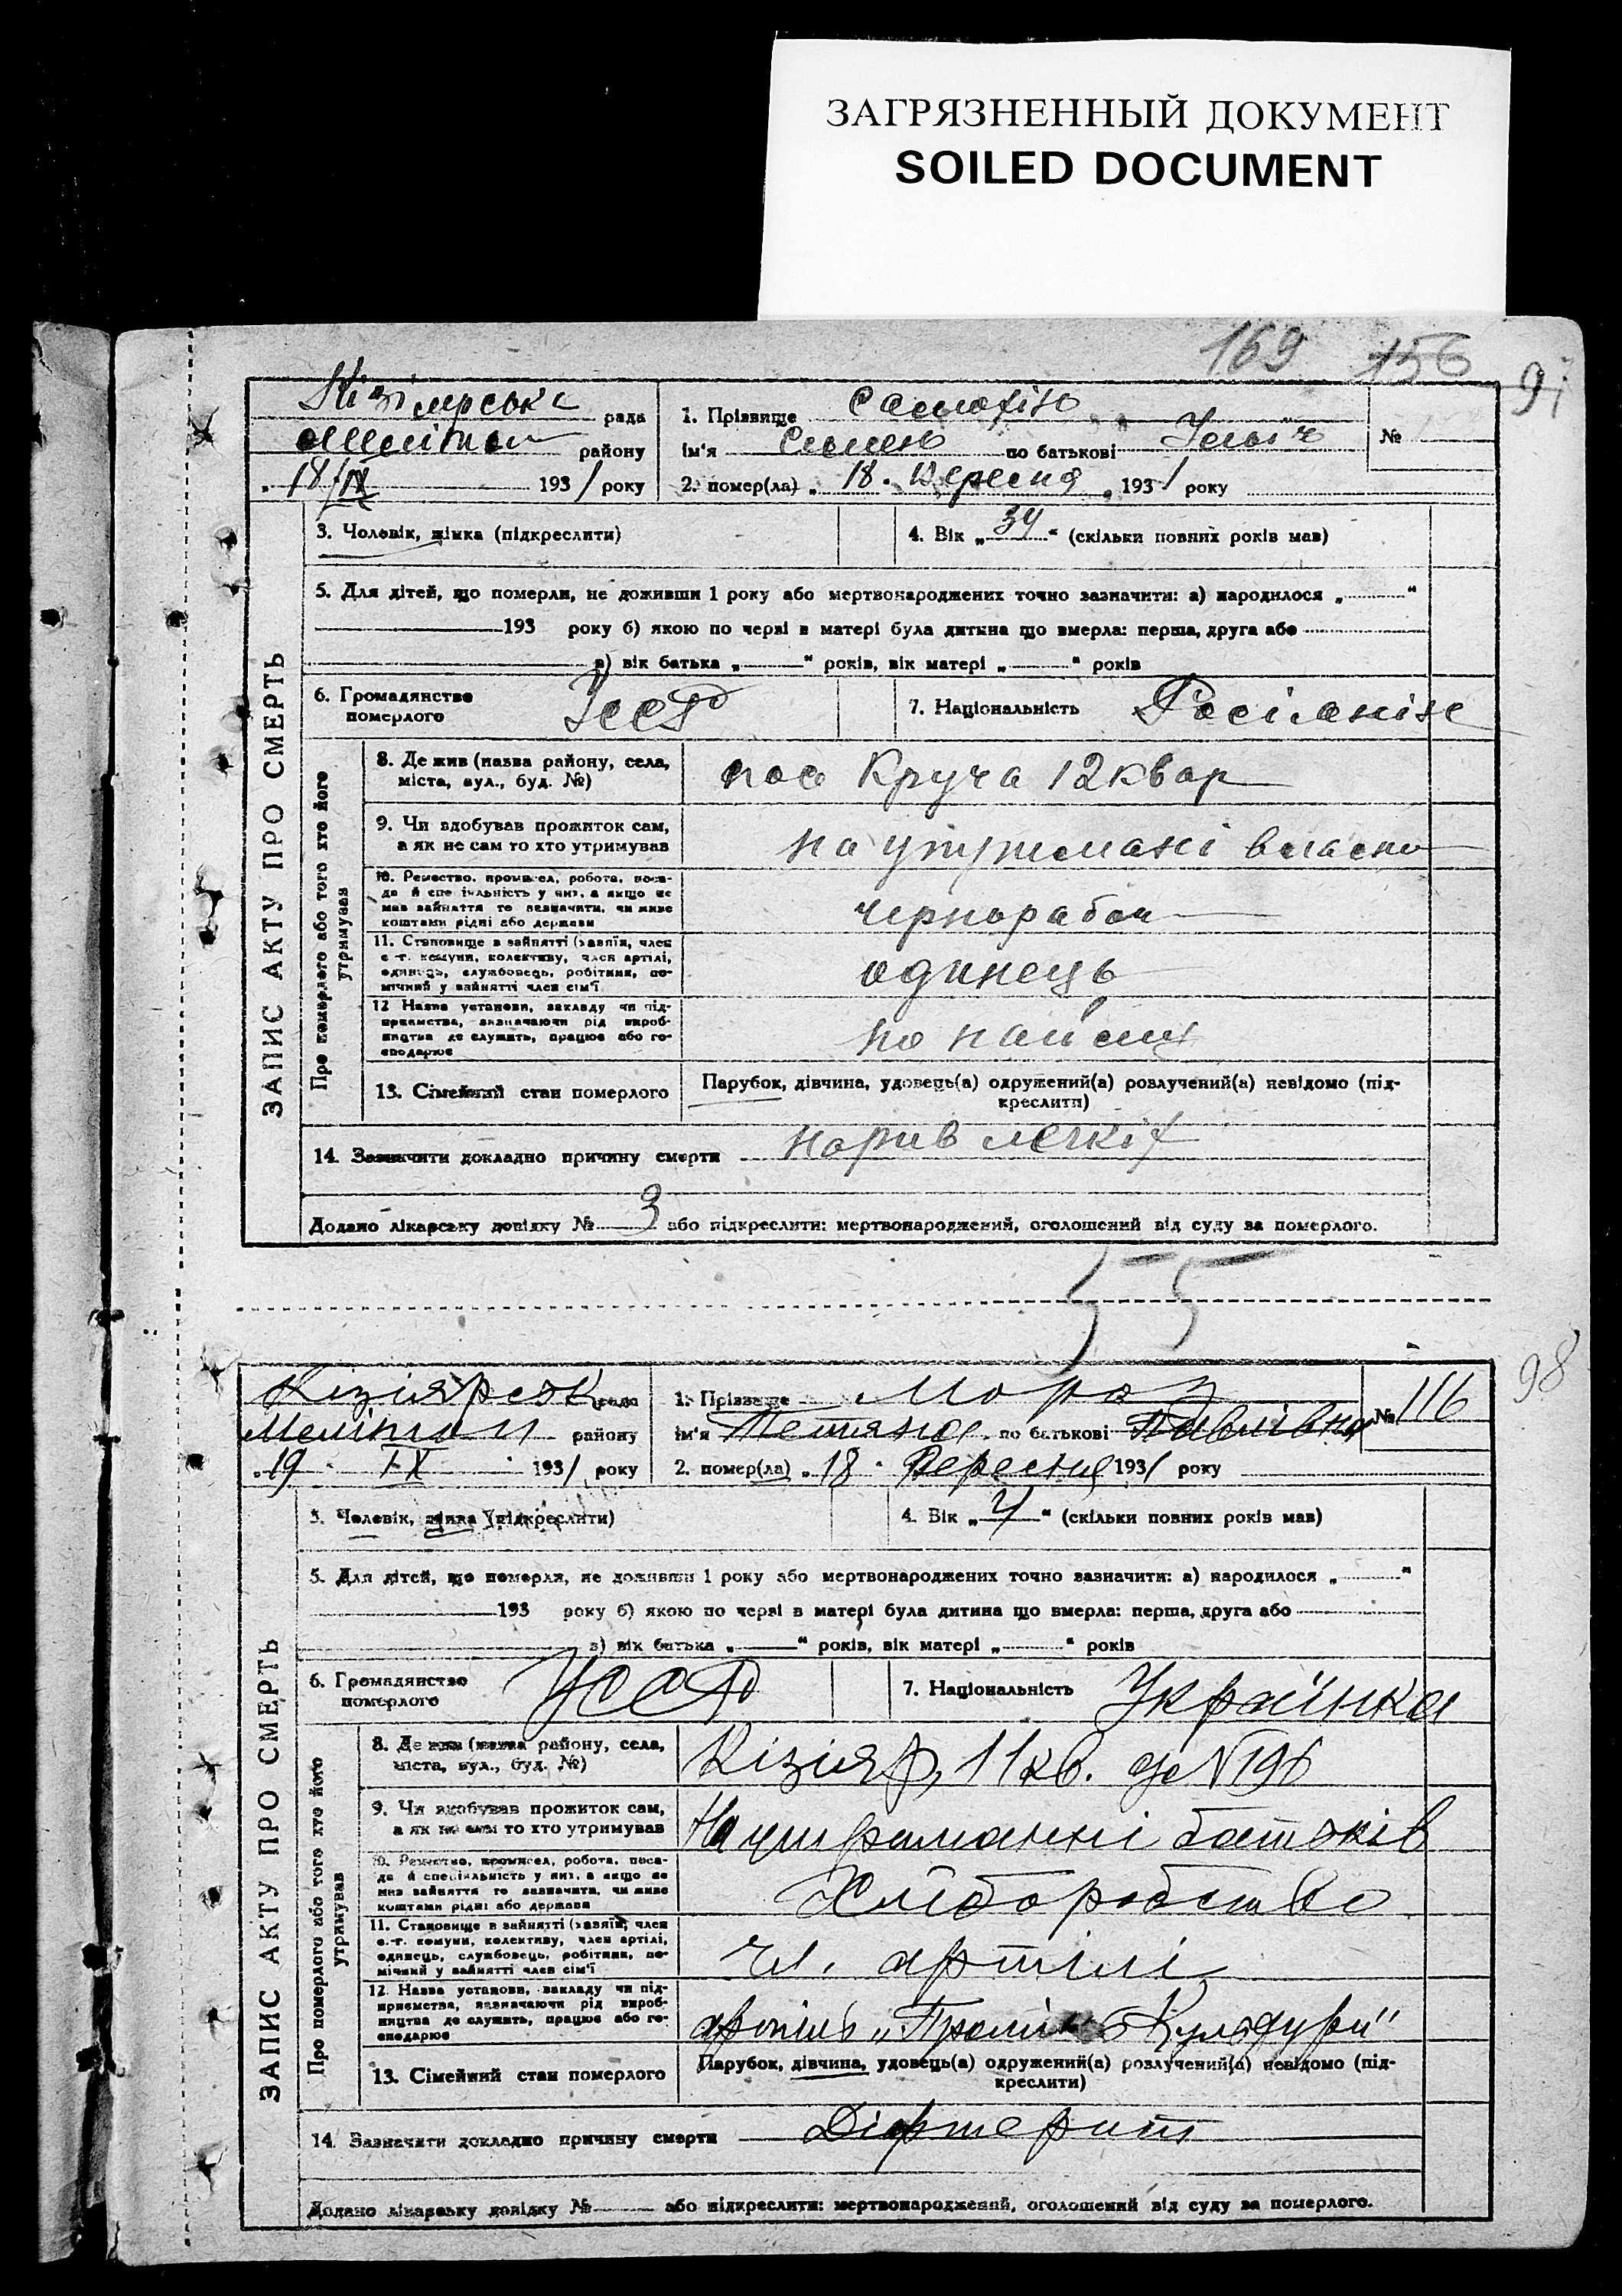 ЗАГРЯЗНЕННЫЙ ДОКУМЕНТ
SOILED DOCUMENT
169 156
97
рада
району
18/IX 1931 року
1. Прізвище Самохін
ім'я Семен по батькові Ілліч
№
2. помер(ла) „ 18 . Вересня „ 1931 року
ЗАПИС АКТУ ПРО СМЕРТЬ
3. Чоловік, жінка (підкреслити)
4. Вік „ 34 “ (скільки повних років мав)
5. Для дітей, що померли, не доживши 1 року або мертвонароджених точно зазначити: а) народилося „ “
193 року б) якою по черзі в матері була дитина що вмерла: перша, друга або
в) вік батька „ “ років, вік матері „ “ років
6. Громадянство
померлого
УССР
7. Національність Росіянін
Про померлого або того хто його
утримував
8. Де жив (назва району, села,
міста, вул., буд. №)
пос Круча 12 квар
9. Чи здобував прожиток сам,
а як не сам то хто утримував
на утримані власно
10. Ремество, промисел, робота, поса-
да й спеціяльність у них, а якщо не
мав зайняття то зазначити, чи живе
коштами рідні або держави
чернорабоч
11. Становище в зайнятті (хазяїн, член
с.-г. комуни, колективу, член артілі,
одинець, службовець, робітник, по-
мічний у зайнятті член сім'ї
одинець
12 Назва установи, закладу чи під-
приємства, зазначаючи рід вироб-
ництва де служить, працює або го-
сподарює
по найму
13. Сімейний стан померлого
Парубок, дівчина, удовець(а) одружений(а) розлучений(а) невідомо (під-
креслити)
14. Зазначити докладно причину смерти нарив легкіх
Додано лікарську довідку № 3 або підкреслити: мертвонароджений, оголошений від суду за померлого.
55
98
Кізіярськ рада
Мелітоп району
„ 19 . IX . 1931 року
1. Прізвище Мороз
ім'я Тетяна по батькові Павлівна
№ 116
2. помер(ла) „ 18 . Вересня 1931 року
ЗАПИС АКТУ ПРО СМЕРТЬ
3. Чоловік, жінка (підкреслити)
4. Вік „ 4 “ (скільки повних років мав)
5. Для дітей, що померли, не доживши 1 року або мертвонароджених точно зазначити: а) народилося „ “
193 року б) якою по черзі в матері була дитина що вмерла: перша, друга або
в) вік батька „ “ років, вік матері „ “ років
6. Громадянство
померлого
УССР
7. Національність Українка
Про померлого або того хто його
утримував
8. Де жив (назва району, села,
міста, вул., буд. №)
Кізіяр, 11 кв. д. №196
9. Чи здобував прожиток сам,
а як не сам то хто утримував
На утриманні батьків
10. Ремество, промисел, робота, поса-
да й спеціяльність у них, а якщо не
мав зайняття то зазначити, чи живе
коштами рідні або держави
Хліборобство
11. Становище в зайнятті (хазяїн, член
с.-г. комуни, колективу, член артілі,
одинець, службовець, робітник, по-
мічний у зайнятті член сім'ї
чл. артілі
12. Назва установи, закладу чи під-
приємства, зазначаючи рід вироб-
ництва де служить, працює або го-
сподарює
артіль „Промінь Культури“
13. Сімейний стан померлого
Парубок, дівчина, удовець(а) одружений(а) розлучений(а) невідомо (під-
креслити)
14. Зазначити докладно причину смерти Діфтерит
Додано лікарську довідку № або підкреслити: мертвонароджений, оголошений від суду за померлого.